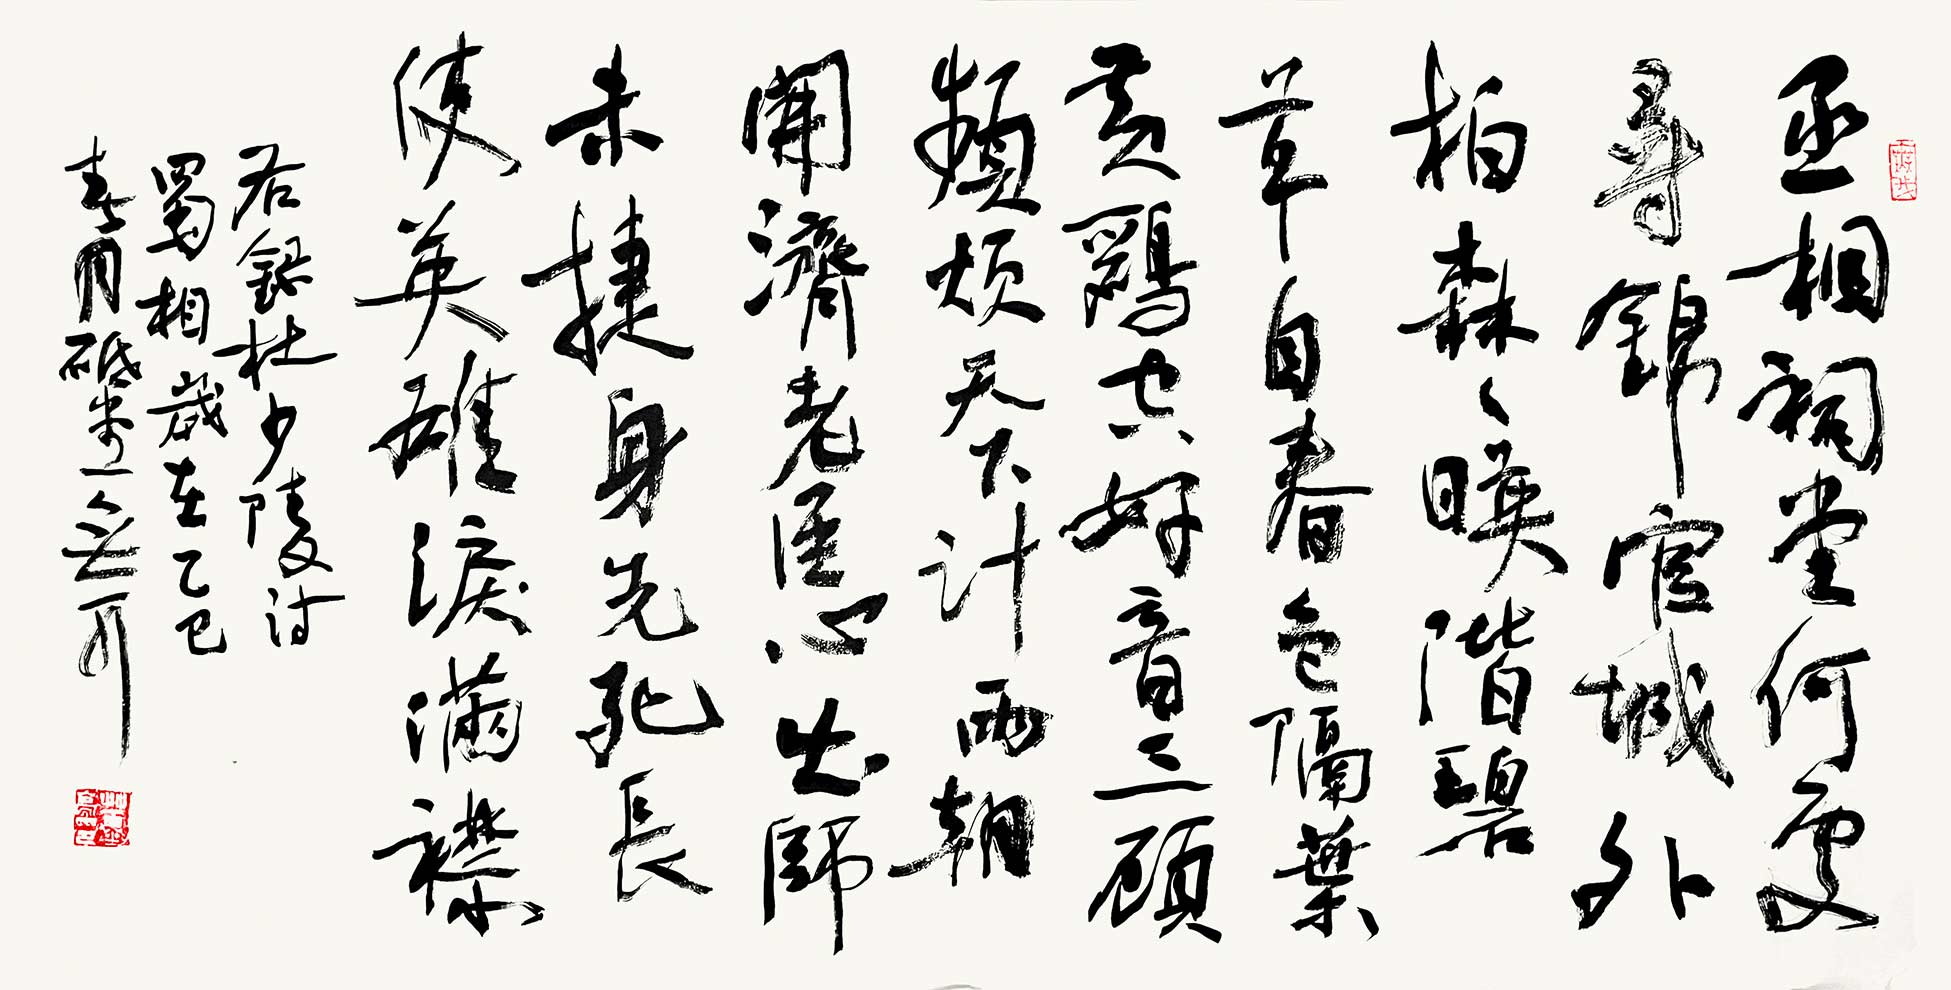 丞相祠堂何處
尋錦官城外
柏森々暎階碧
草自春色隔葉
黃鸝空好音三顧
頻煩天下計兩朝
開濟老臣心出師
未捷身先死長
使英雄淚滿襟
右録杜少陵诗
蜀相歲在乙巳
春月砥